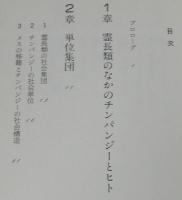 目次
プロローグ
1章 霊長類のなかのチンパンジーとヒト
2章 単位集団
1 霊長類の社会集団
2 チンパンジーの社会単位
3 メスの移籍とチンパンジーの社会構造